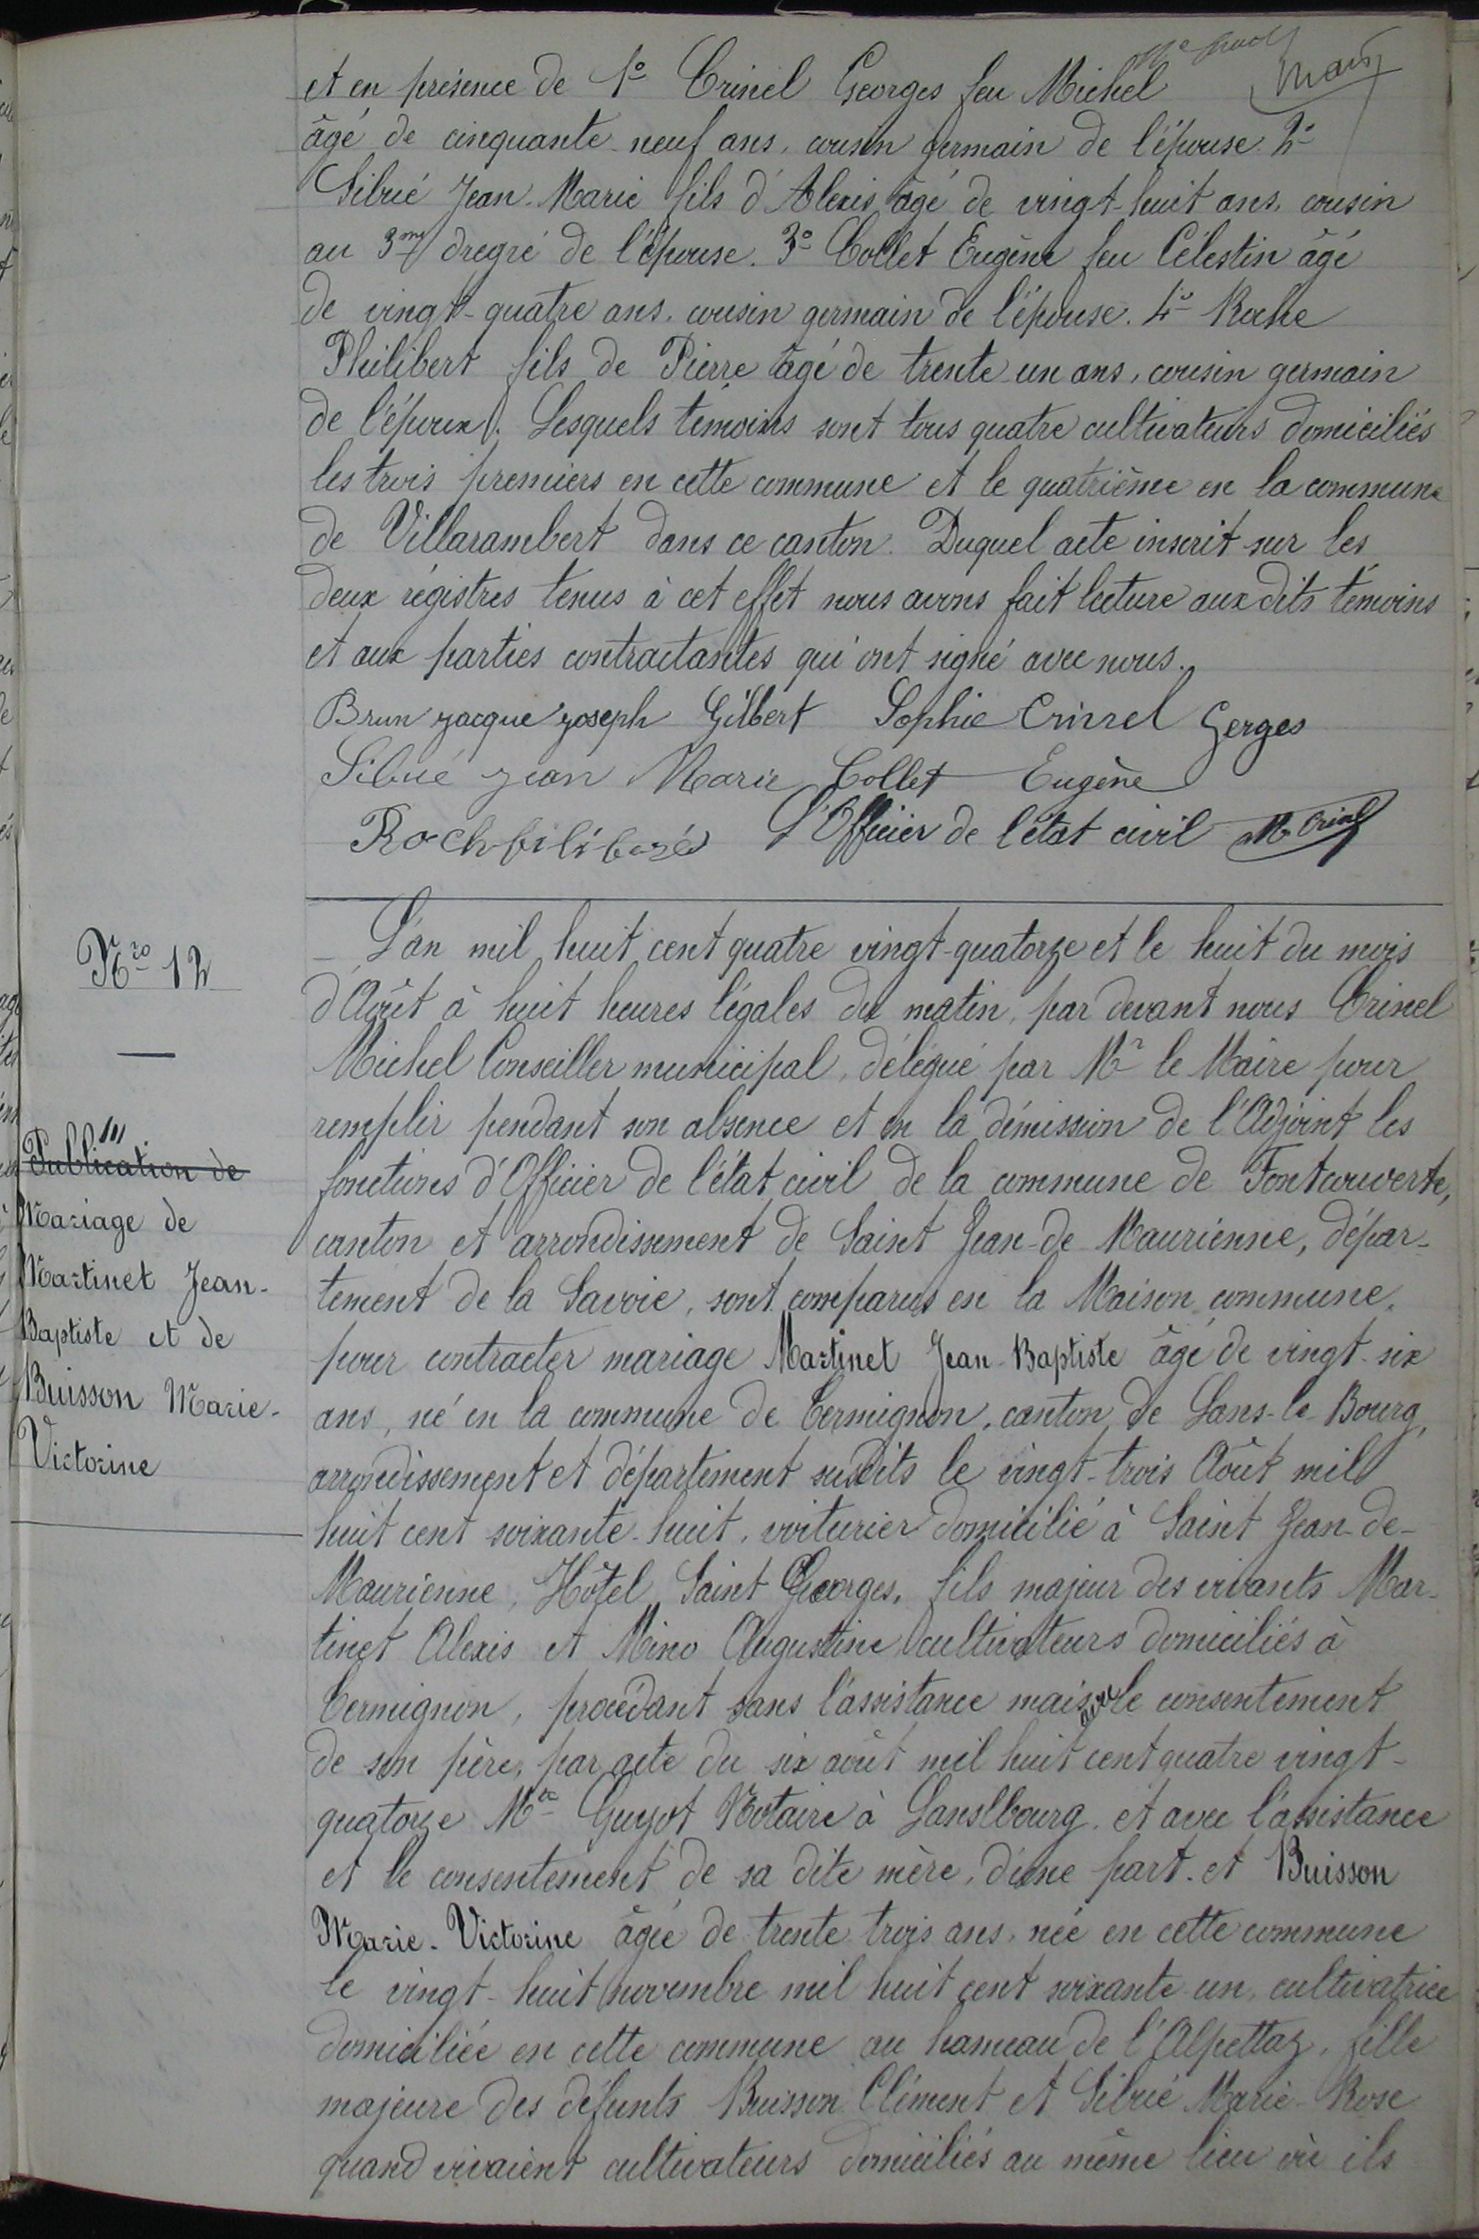 et en présence de 1º Crinel Georges feu Michel
âgé de cinquante-neuf ans, cousin germain de l'épouse 2º
Sibué Jean-Marie fils d'Alexis, âgé de vingt-huit ans, cousin
au 3me dregré de l'épouse. 3º Collet Eugène feu Célestin âgé
de vingt-quatre ans, cousin germain de l'épouse. 4º Roche
Philibert fils de Pierre âgé de trente-un ans, cousin germain
de l'époux. Lesquels témoins sont tous quatre cultivateurs domiciliés
les trois premiers en cette commune et le quatrième en la commune
de Villarambert dans ce canton. Duquel acte inscrit sur les
deux régistres tenus à cet effet nous avons fait lecture aux dits témoins
et aux parties contractantes qui ont signé avec nous.
Brun jacque joseph Gilbert Sophie Crinel Gerges
Sibué jean Marie Collet Eugène
Roch filibert L'Officier de l'état civil M Crinel
Nro 12
Publication de
Mariage de
Martinet Jean-
Baptiste et de
Buisson Marie-
Victorine
L'an mil huit cent quatre vingt-quatorze et le huit du mois
d'Août à huit heures légales du matin, par devant nous Crinel
Michel Conseiller municipal, délégué par Mr le Maire pour
remplir pendant son absence et en la démission de l'Adjoint les
fonctions d'Officier de l'état civil de la commune de Fontcouverte,
canton et arrondissement de Saint Jean-de Maurienne, dépar-
tement de la Savoie, sont comparus en la Maison commune,
pour contracter mariage Martinet Jean-Baptiste âgé de vingt-six
ans, né en la commune de Termignon, canton de Lans-le-Bourg,
arrondissement et département susdits le vingt-trois Août mil
huit cent soixante-huit, voiturier domicilié à Saint Jean-de-
Maurienne, Hôtel Saint Georges, fils majeur des vivants Mar-
tinet Alexis et Mino Augustine cultivateurs domiciliés à
Termignon, procédant sans l'assistance mais avec le consentement
de son père, par acte du six août mil huit cent quatre vingt-
quatorze Me Guyot Notaire à Lanslbourg, et avec l'assistance
et le consentement de sa dite mère, d'une part. et Buisson
Marie-Victorine âgée de trente trois ans, née en cette commune
le vingt-huit novembre mil huit cent soixante-un, cultivatrice
domiciliée en cette commune au hameau de l'Alpettaz, fille
majeure des défunts Buisson Clément et Sibué Marie-Rose
quand vivaient cultivateurs domiciliés au même lieu où ils